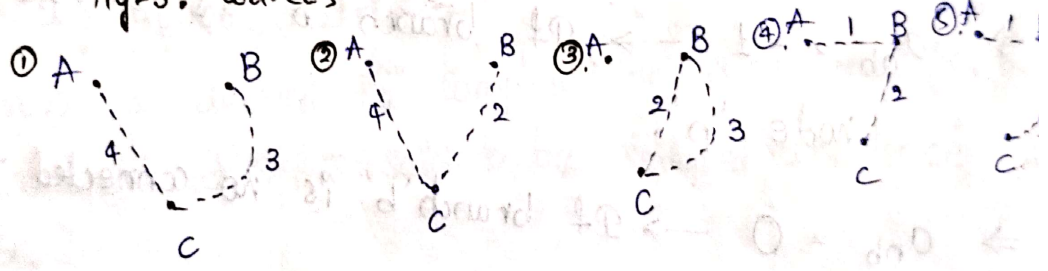 ① A B 4 3 C
② A B 4 2 C
③ A B 2 3 C
④ A 1 B 2 C
⑤ A 1 C